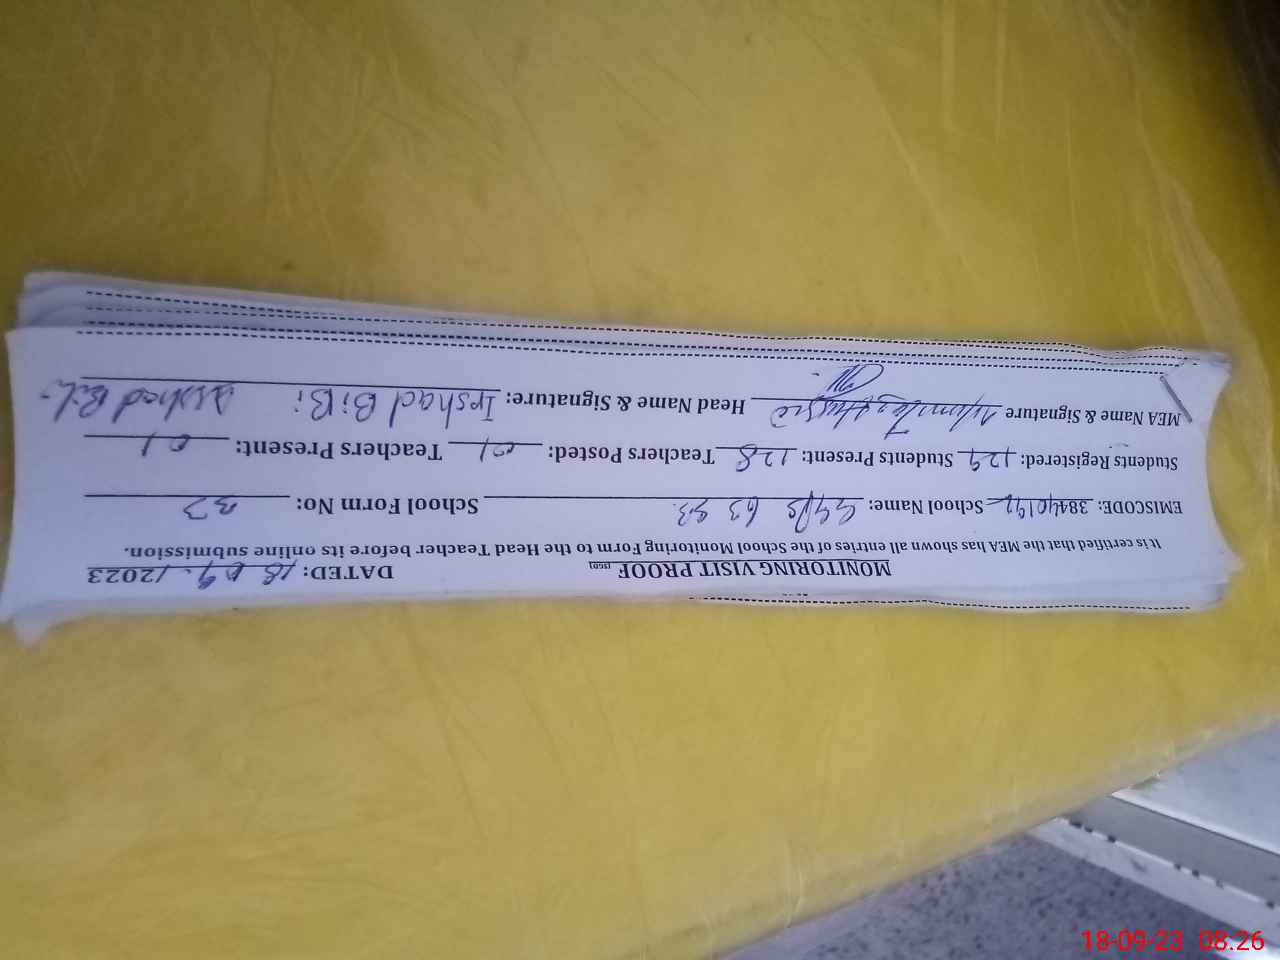 MONITORING VISIT PROOF [360] DATED: 18.09./2023
It is certified that the MEA has shown all entries of the School Monitoring Form to the Head Teacher before its online submission.
EMISCODE: 38440192 School Name: GGPS 63 SB School Form No: 33
Students Registered: 129 Students Present: 128 Teachers Posted: 01 Teachers Present: 01
MEA Name & Signature Head Name & Signature: Irshad BiBi Irshad Bibi
18-09-23 08:26